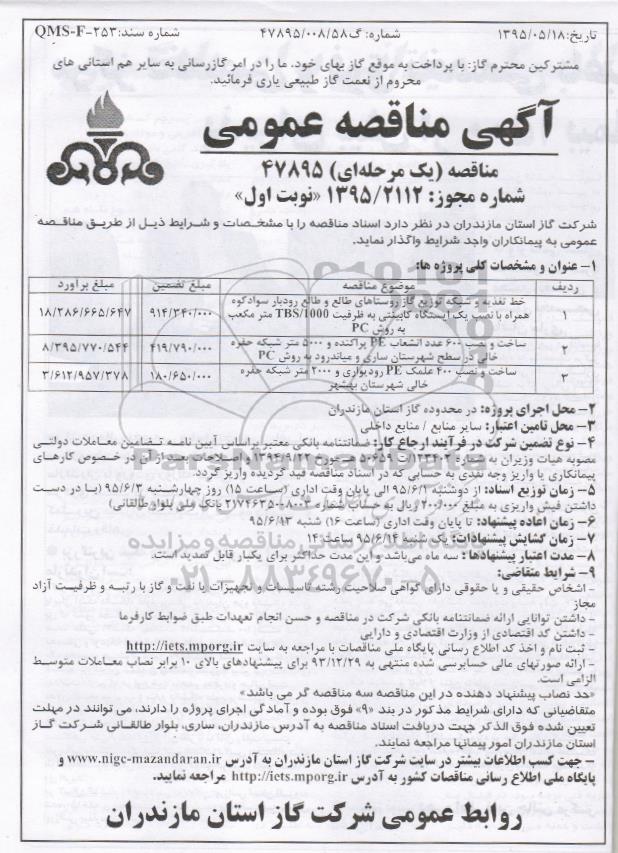 تاریخ: ۱۳۹۵/۰۵/۱۸ شماره: گ۴۷۸۹۵/۰۰۸/۵۸ شماره سند: QMS-F-۲۵۳
مشترکین محترم گاز: با پرداخت به موقع گاز بهای خود، ما را در امر گازرسانی به سایر هم استانی های
محروم از نعمت گاز طبیعی یاری فرمائید.
آگهی مناقصه عمومی
مناقصه (یک مرحله‌ای) ۴۷۸۹۵
شماره مجوز: ۱۳۹۵/۲۱۱۲ «نوبت اول»
شرکت گاز استان مازندران در نظر دارد اسناد مناقصه را با مشخصات و شرایط ذیل از طریق مناقصه
عمومی به پیمانکاران واجد شرایط واگذار نماید.
۱- عنوان و مشخصات کلی پروژه ها:
ردیف موضوع مناقصه مبلغ تضمین مبلغ برآورد
۱ خط تغذیه و شبکه توزیع گاز روستاهای طالع و طالع رودبار سوادکوه
همراه با نصب یک ایستگاه کابینتی به ظرفیت TBS/1000 متر مکعب
به روش PC ۹۱۴/۳۴۰/۰۰۰ ۱۸/۲۸۶/۶۶۵/۶۴۷
۲ ساخت و نصب ۶۰۰ عدد انشعاب PE پراکنده و ۵۰۰۰ متر شبکه حفره
خالی در سطح شهرستان ساری و میاندرود به روش PC ۴۱۹/۷۹۰/۰۰۰ ۸/۳۹۵/۷۷۰/۵۴۴
۳ ساخت و نصب ۴۰۰ علمک PE رودیواری و ۲۰۰۰ متر شبکه حفره
خالی شهرستان بهشهر ۱۸۰/۶۵۰/۰۰۰ ۳/۶۱۲/۹۵۷/۳۷۸
۲- محل اجرای پروژه: در محدوده گاز استان مازندران
۳- محل تامین اعتبار: سایر منابع / منابع داخلی
۴- نوع تضمین شرکت در فرآیند ارجاع کار: ضمانتنامه بانکی معتبر براساس آیین نامه تضامین معاملات دولتی
مصوبه هیات وزیران به شماره ۱۲۳۴۰۲/ت۵۰۶۵۹ه مورخ ۱۳۹۴/۹/۲۲ و اصلاحات بعدی آن در خصوص کارهای
پیمانکاری یا واریز وجه نقدی به حسابی که در اسناد مناقصه قید گردیده واریز گردد.
۵- زمان توزیع اسناد: از دوشنبه ۹۵/۶/۱ الی پایان وقت اداری (ساعت ۱۵) روز چهارشنبه ۹۵/۶/۳ (با در دست
داشتن فیش واریزی به مبلغ ۲۰۰/۰۰۰ ریال به حساب شماره ۲۱۷۴۶۳۵۰۰۸۰۰۳ بانک ملی بلوار طالقانی)
۶- زمان اعاده پیشنهاد: تا پایان وقت اداری (ساعت ۱۶) شنبه ۹۵/۶/۱۳
۷- زمان گشایش پیشنهادات: یک شنبه ۹۵/۶/۱۴ ساعت: ۱۴
۸- مدت اعتبار پیشنهادها : سه ماه می‌باشد و این مدت حداکثر برای یکبار قابل تمدید است.
۹- شرایط متقاضی:
- اشخاص حقیقی و یا حقوقی دارای گواهی صلاحیت رشته تاسیسات و تجهیزات یا نفت و گاز با رتبه و ظرفیت آزاد
مجاز
- داشتن توانایی ارائه ضمانتنامه بانکی شرکت در مناقصه و حسن انجام تعهدات طبق ضوابط کارفرما
- داشتن کد اقتصادی از وزارت اقتصادی و دارایی
- ثبت نام و اخذ کد اطلاع رسانی پایگاه ملی مناقصات با مراجعه به سایت http://iets.mporg.ir
- ارائه صورتهای مالی حسابرسی شده منتهی به ۹۳/۱۲/۲۹ برای پیشنهادهای بالای ۱۰ برابر نصاب معاملات متوسط
الزامی است.
«حد نصاب پیشنهاد دهنده در این مناقصه سه مناقصه گر می باشد»
متقاضیانی که دارای شرایط مذکور در بند «۹» فوق بوده و آمادگی اجرای پروژه را دارند، می توانند در مهلت
تعیین شده فوق الذکر جهت دریافت اسناد مناقصه به آدرس مازندران، ساری، بلوار طالقانی شرکت گاز
استان مازندران امور پیمانها مراجعه نمایند.
- جهت کسب اطلاعات بیشتر در سایت شرکت گاز استان مازندران به آدرس www.nigc-mazandaran.ir و
پایگاه ملی اطلاع رسانی مناقصات کشور به آدرس http://iets.mporg.ir مراجعه نمایید.
روابط عمومی شرکت گاز استان مازندران